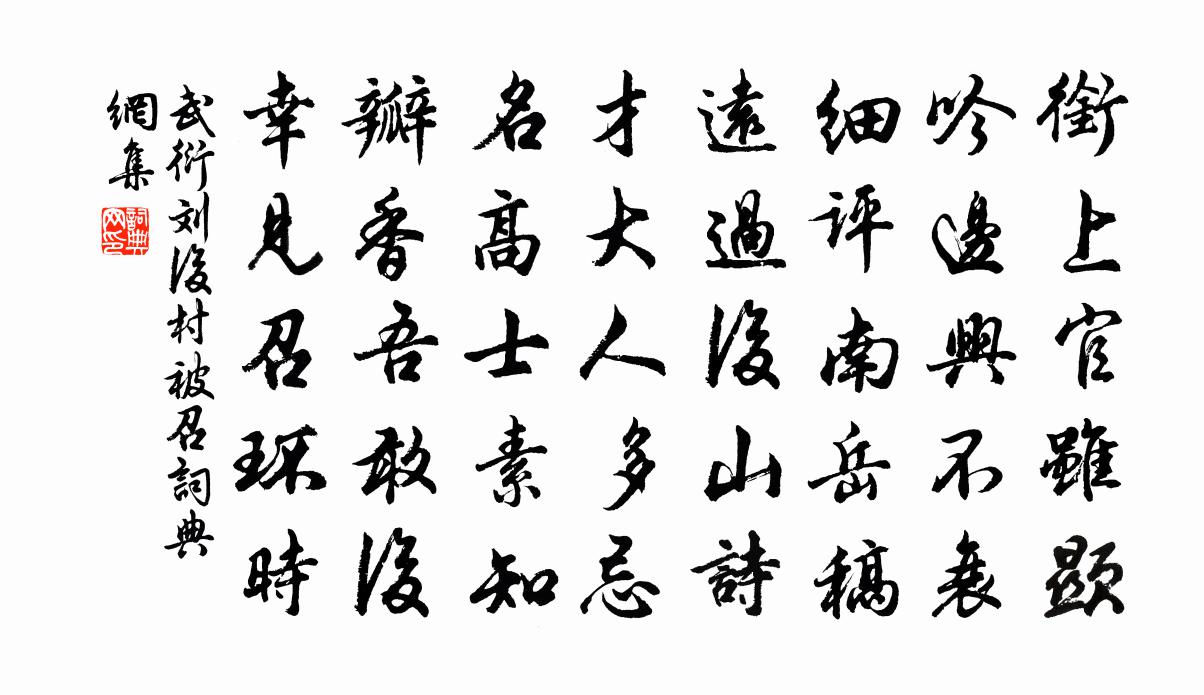 銜上官雖顯
吟邊興不衰
細評南岳稿
遠過後山詩
才大人多忌
名高士素知
瓣香吾敢後
幸見召環時
武衍刘後村被召詞典
網集
詞典网印